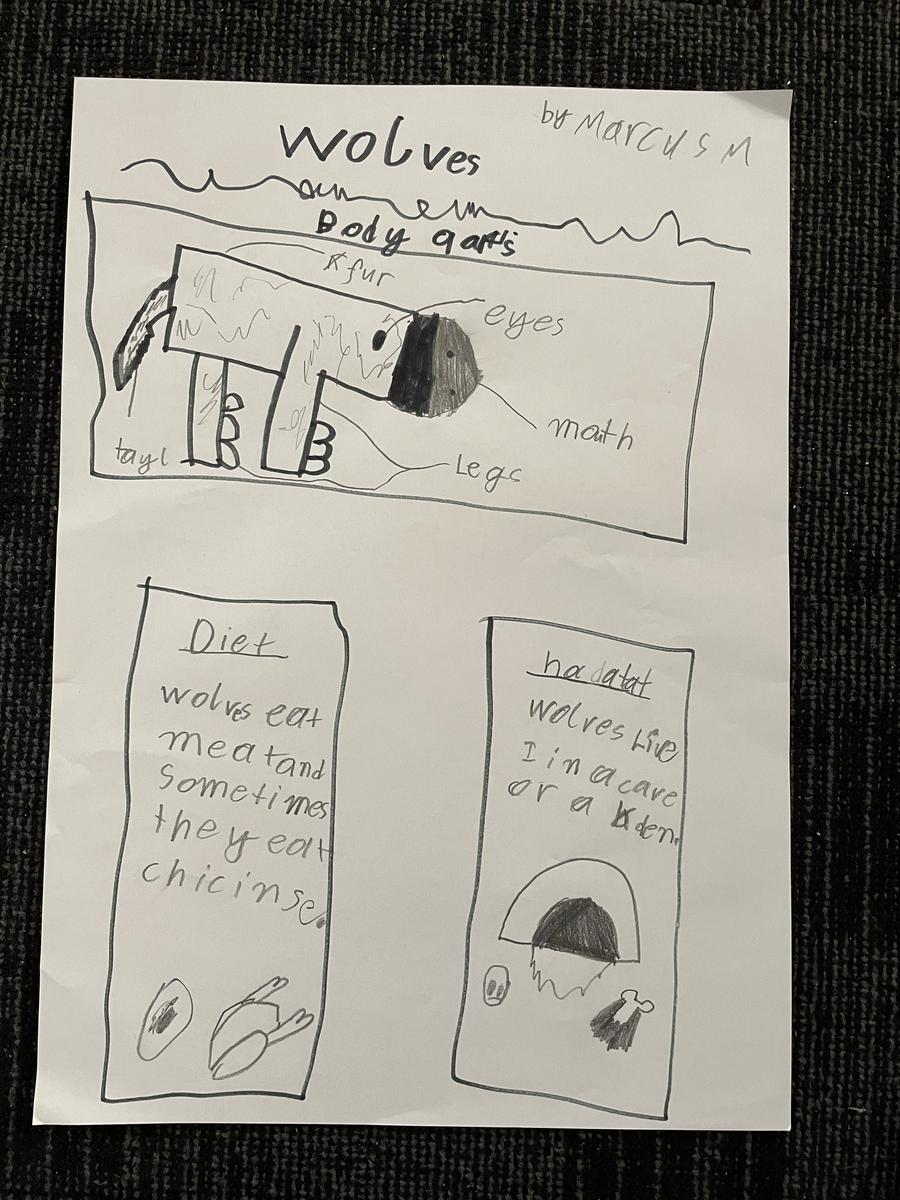 by Marcus M
Wolves
Body qarts
fur
eyes
mouth
tayl
Legs
Diet
wolves eat
meat and
sometimes
they eat
chicinse.
hadatat
wolves Live
I in a cave
or a den.